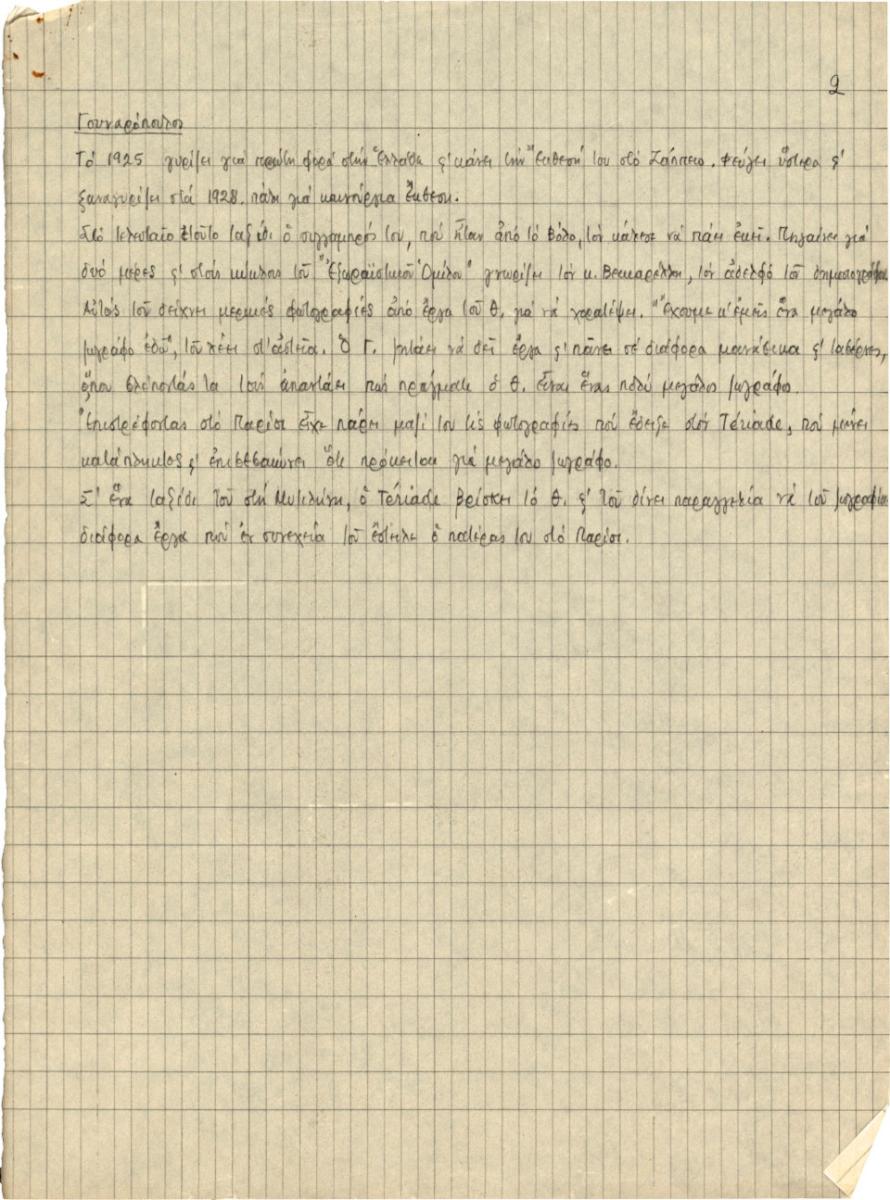 2
Γουναρόπουλος
Τό 1925 γυρίζει γιά πρώτη φορά στήν Ἑλλάδα ϛ' κάνει τήν Ἔκθεσή του στό Ζάππειο. Φεύγει ὕστερα ϛ'
ξαναγυρίζει στά 1928. πάλι γιά καινούργια Ἔκθεση.
Στό τελευταῖο τοῦτο ταξίδι ὁ συγγαμπρός του, πού ἦταν ἀπό τό Βόλο, τόν κάλεσε νά πάει ἐκεῖ. Πηγαίνει γιά
δυό μέρες ϛ' στούς κύκλους τοῦ "Ἐξωραϊστικοῦ Ὁμίλου" γνωρίζει τόν κ. τόν ἀδελφό τοῦ δημοσιογράφου
Αὐτός τοῦ δείχνει μερικές φωτογραφίες ἀπό ἔργα τοῦ Θ. γιά νά χορατέψει. "Ἔχουμε κ' ἐμεῖς ἕνα μεγάλο
ζωγράφο ἐδῶ", τοῦ λέει στ' ἀστεῖα. Ὁ Γ. ζητάει νά δεῖ ἔργα ϛ' πάνε σέ διάφορα μανάβικα ϛ' ταβέρνες,
ὅπου βλέποντάς τα τούς ἀπαντάει πώς πράγματι ὁ Θ. εἶναι ἕνας πολύ μεγάλος ζωγράφος.
Ἐπιστρέφοντας στό Παρίσι εἶχε πάρει μαζί του τίς φωτογραφίες πού ἔδειξε στόν Tériade, πού μένει
κατάπληκτος ϛ' ἐπιβεβαιώνει ὅτι πρόκειται γιά μεγάλο ζωγράφο.
Σ' ἕνα ταξίδι του στή Μυτιλήνη, ὁ Tériade βρίσκει τό Θ. ϛ' τοῦ δίνει παραγγελία νά τοῦ ζωγραφίσει
διάφορα ἔργα πού ἐν συνεχεία τοῦ ἔστειλε ὁ πατέρας του στό Παρίσι.